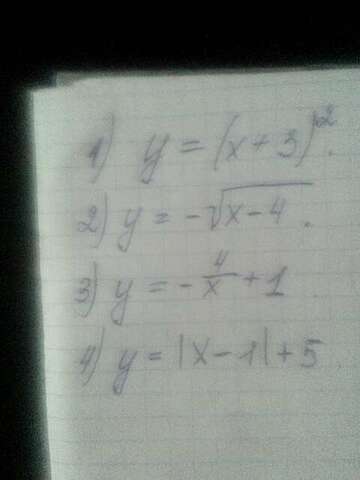 1) y = (x + 3)².
2) y = -√(x - 4).
3) y = - 4/x + 1
4) y = |x - 1| + 5